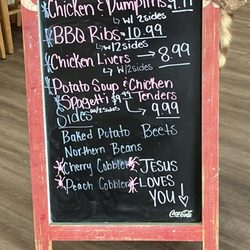 Chicken & Dumplins 9.99
w/2sides
BBQ Ribs 10.99
w/2sides
Chicken Livers 8.99
w/2sides
Potato Soup & Chicken
Spagetti $9.99 Tenders
Sides w/2sides 9.99
Baked Potato Beets
Northern Beans
Cherry Cobbler JESUS
Peach Cobbler LOVES
YOU
Coca-Cola